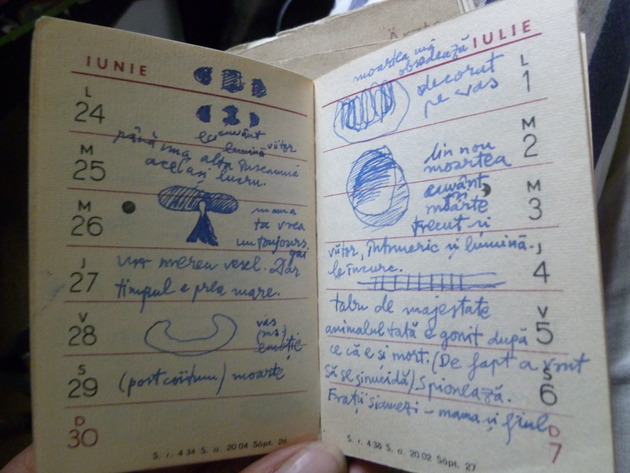 IUNIE
L
24
cuvânt
lumină viitor
până una alta înseamnă
M
25
același lucru.
M
26
mama
ta vrea
un toujours
gai
J
27
un mereu vesel. Dar
timpul e prea mare.
V
28
vas
(ns)
emoție
S
29
(post coitum) moarte
D
30
S. r. 4 34 S. a. 20 04 Săpt. 26
IULIE
moartea mă
obsedează
L
1
decorat
pe vas
M
2
din nou
moartea
M
3
cuvânt
și
moarte
trecut și
viitor, întuneric și lumină.
J
4
le încurc.
tabu de majestate
V
5
animalul tată e gonit după
ce că e și mort. (De fapt a vrut
S
6
să se sinucidă) Spionează.
Frații siamezi - mama și fiul
D
7
S. r. 4 36 S. a. 20 02 Săpt. 27